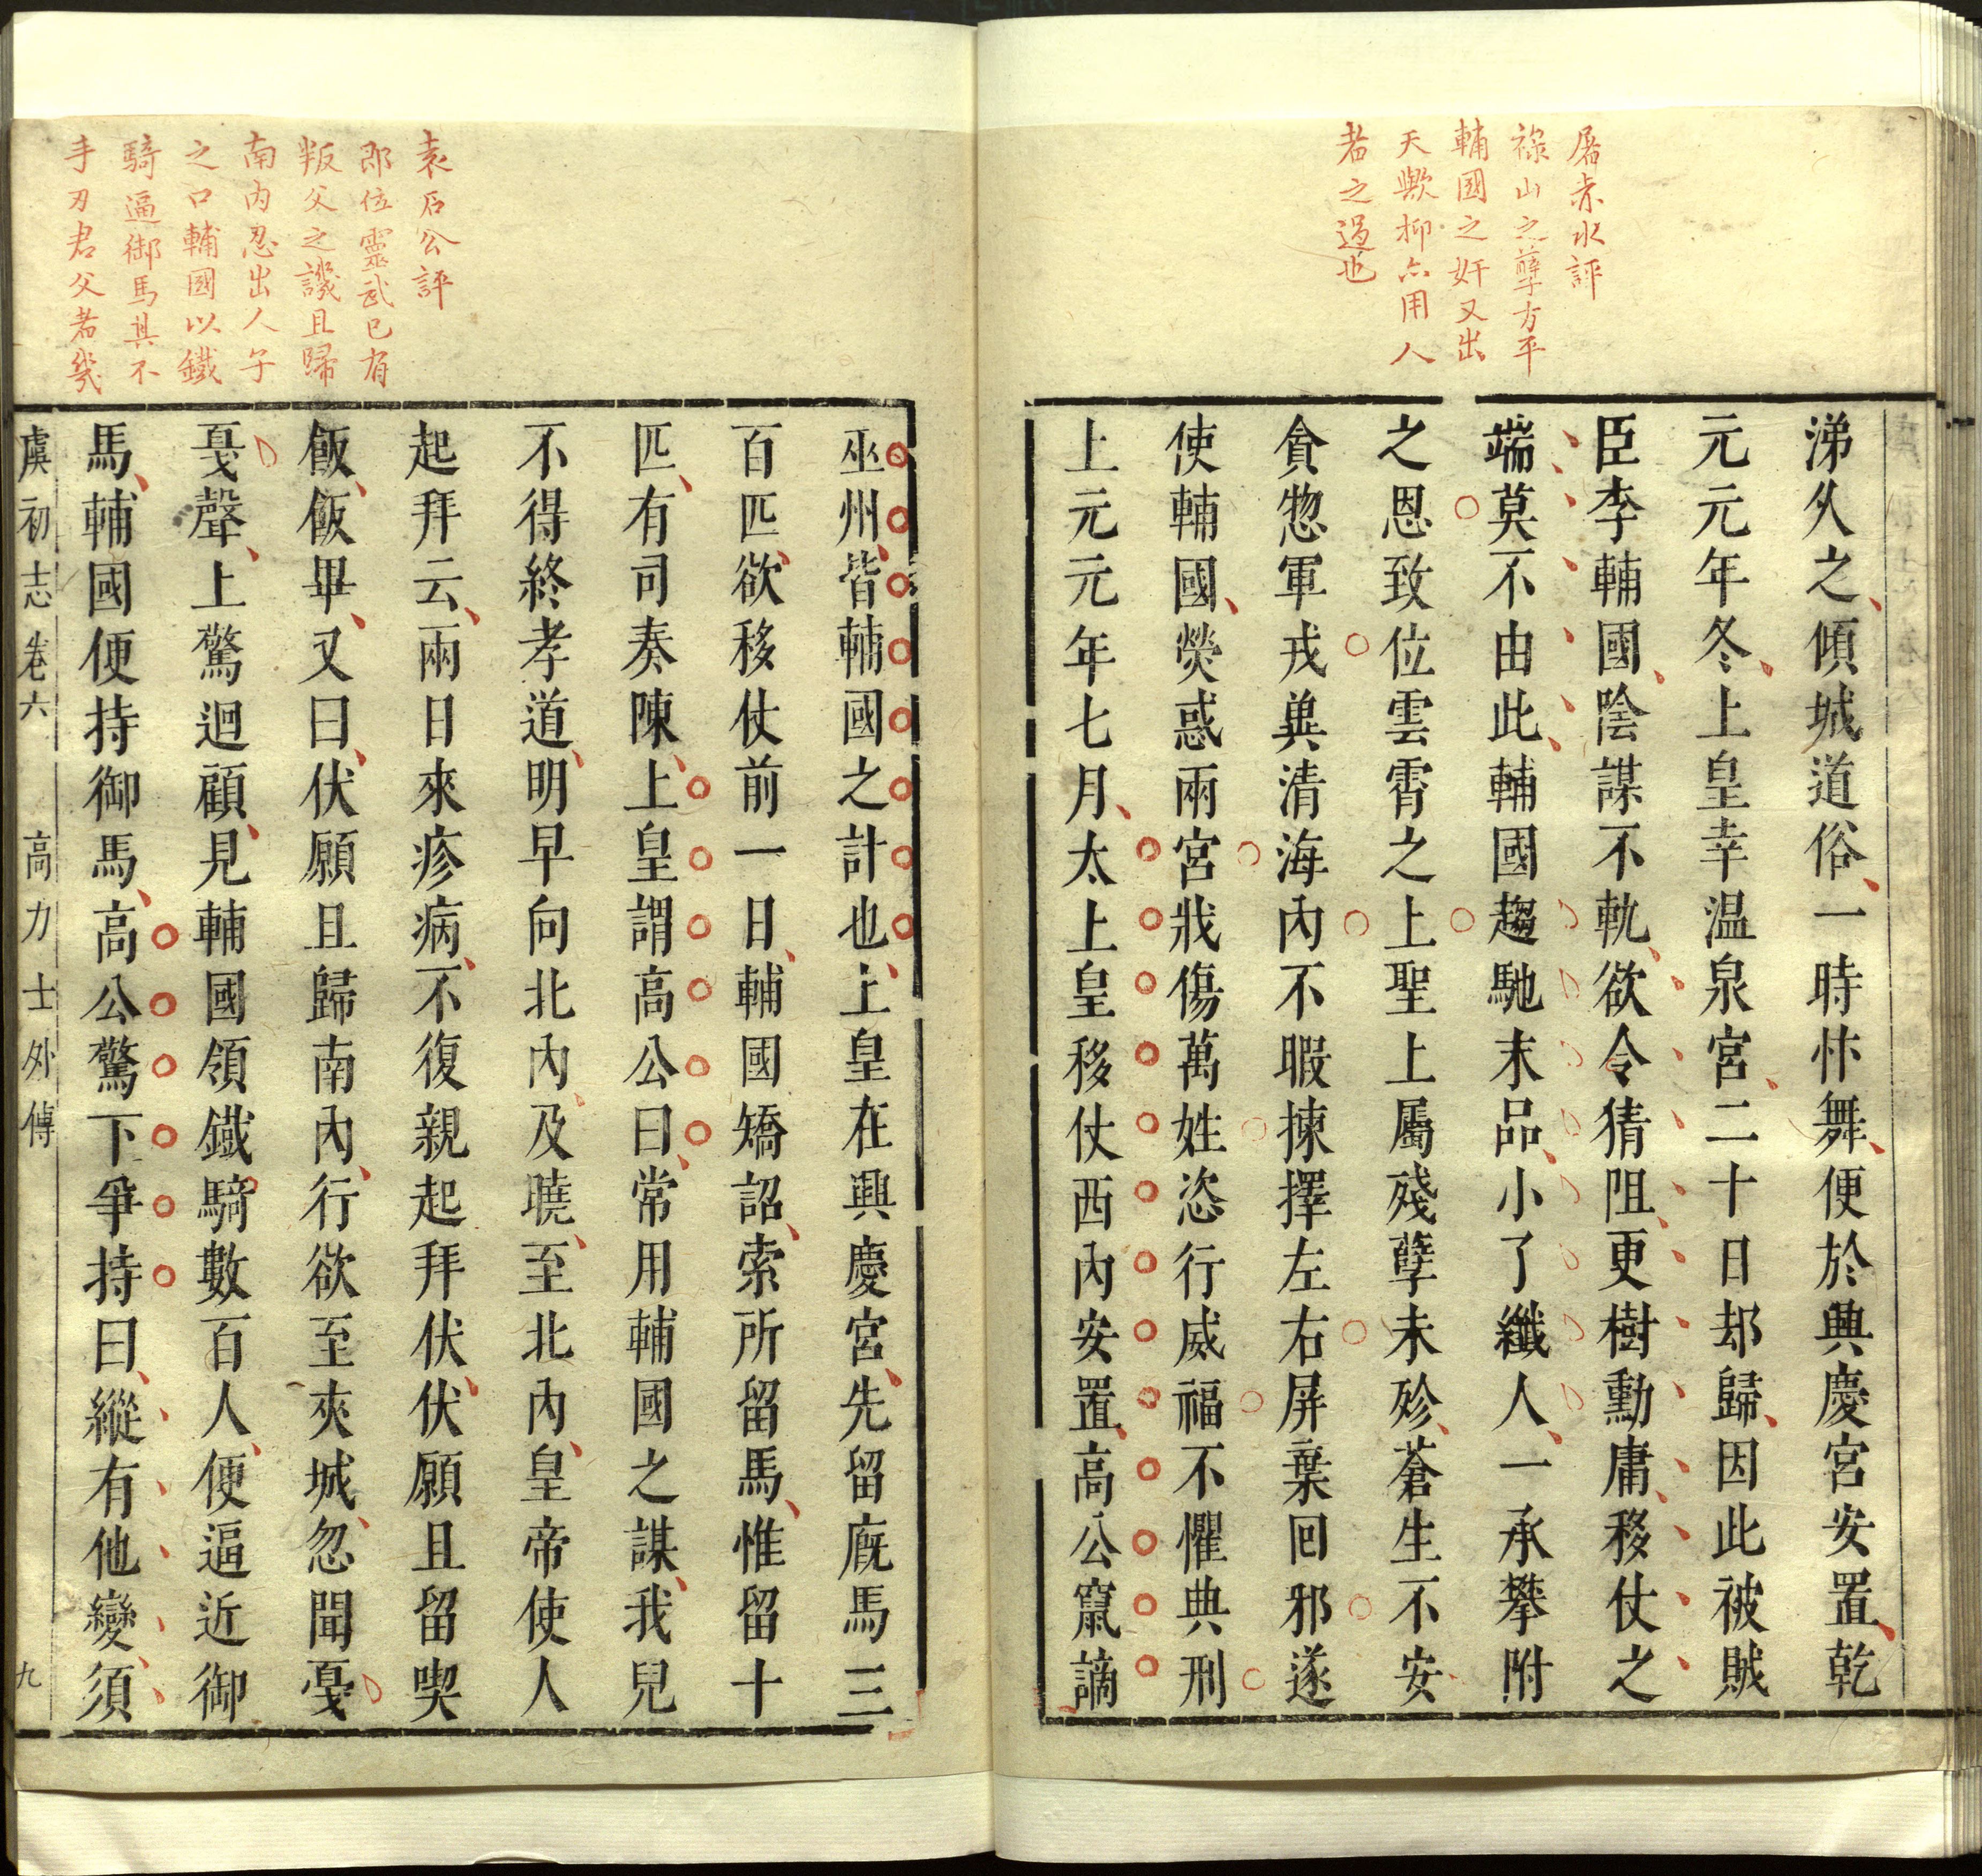 屠赤水評
祿山之孽方平
輔國之奸又出
天歟抑亦用人
者之過也
涕久之傾城道俗一時忭舞便於興慶宮安置乾
元元年冬上皇幸温泉宮二十日却歸因此被賊
臣李輔國陰謀不軌欲令猜阻更樹勳庸移仗之
端莫不由此輔國趨馳末品小了纖人一承攀附
之恩致位雲霄之上聖上屬殘孽未殄蒼生不安
貪惣軍戎兾清海內不暇揀擇左右屏棄回邪遂
使輔國熒惑兩宮戕傷萬姓恣行威福不懼典刑
上元元年七月太上皇移仗西內安置高公竄謫
袁石公評
郎位靈武已有
叛父之譏且歸
南內忍出人子
之口輔國以鐵
騎逼御馬其不
手刃君父者幾
巫州皆輔國之計也上皇在興慶宮先留廐馬三
百匹欲移仗前一日輔國矯詔索所留馬惟留十
匹有司奏陳上皇謂高公曰常用輔國之謀我兒
不得終孝道明早向北內及曉至北內皇帝使人
起拜云兩日來疹病不復親起拜伏伏願且留喫
飯飯畢又曰伏願且歸南內行欲至夾城忽聞戞
戞聲上驚迴顧見輔國領鐵騎數百人便逼近御
馬輔國便持御馬高公驚下爭持曰縱有他變須
虞初志卷六 高力士外傳 九